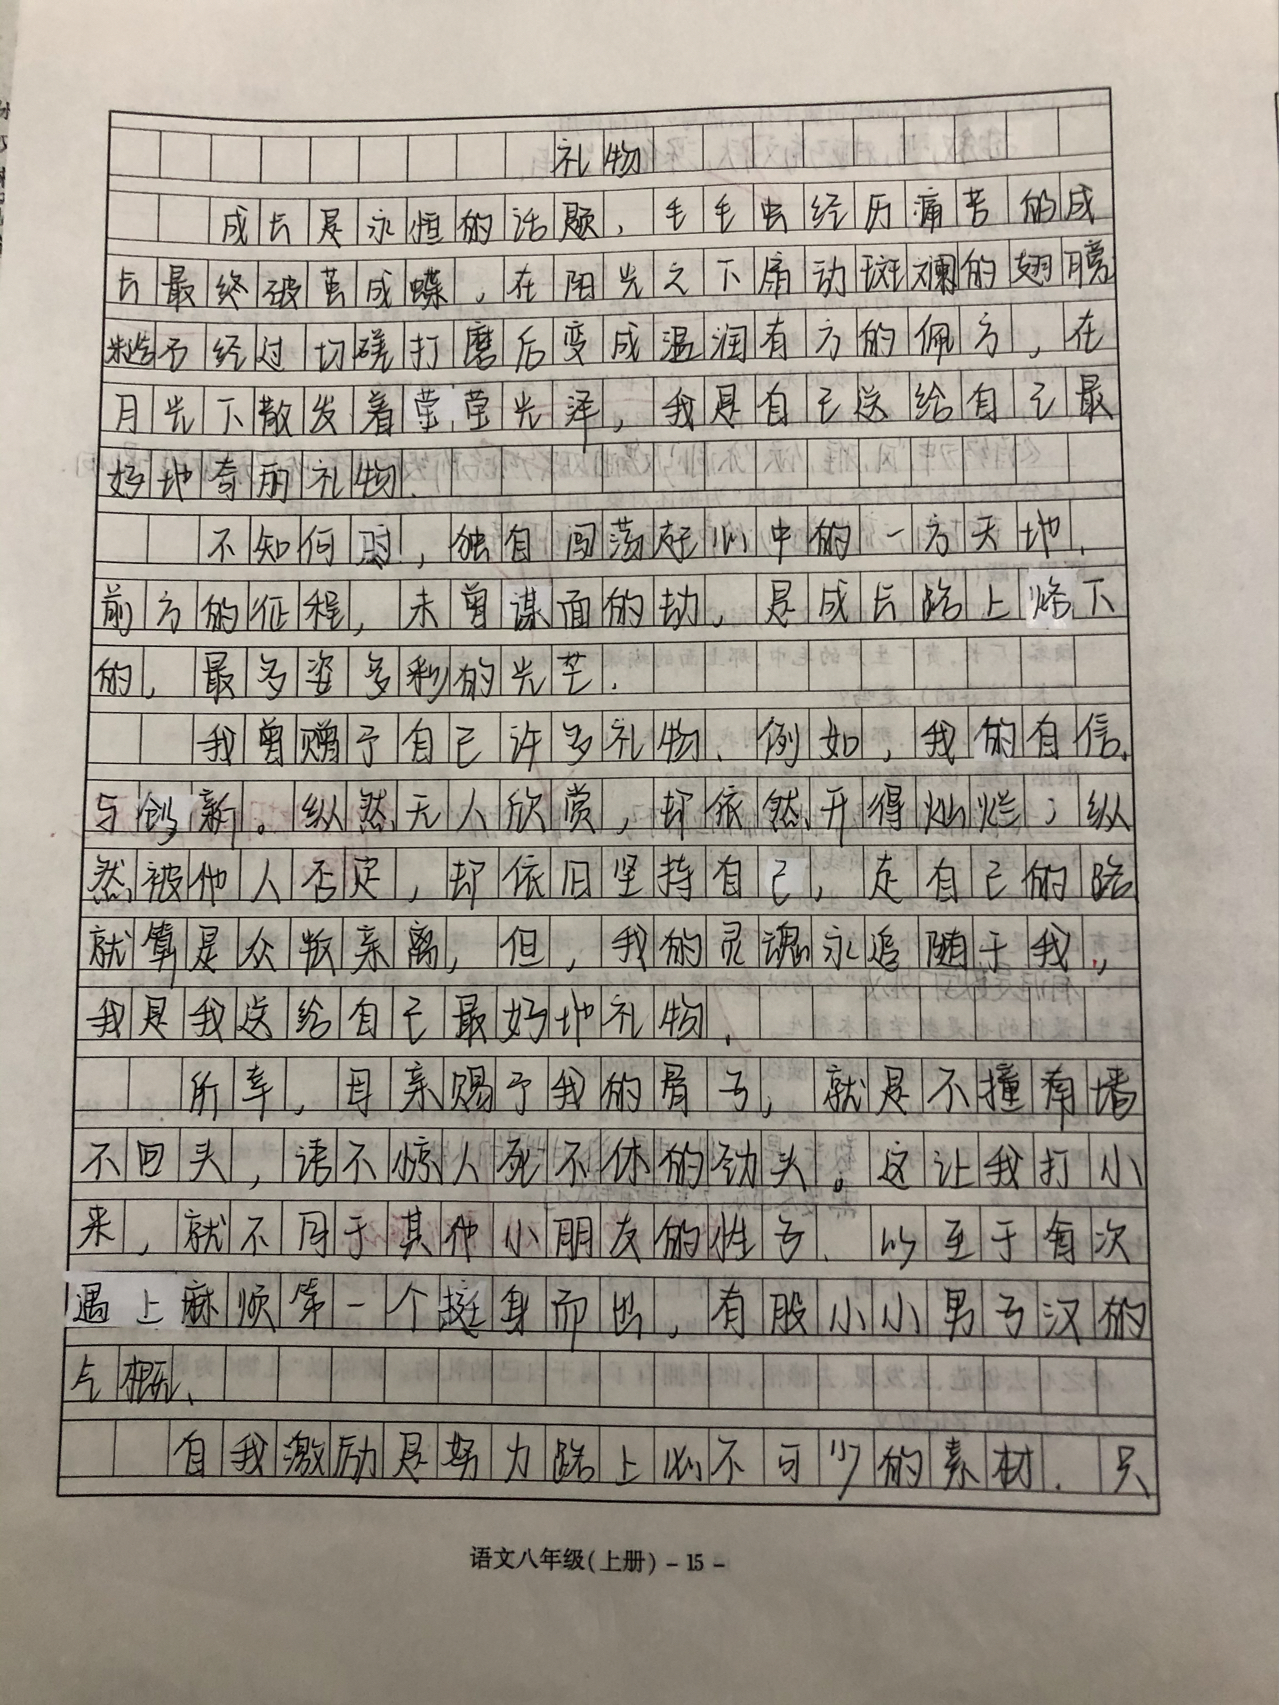 礼物
成长是永恒的话题，毛毛虫经历痛苦的成
长最终破茧成蝶，在阳光之下扇动斑斓的翅膀
糙石经过切磋打磨后变成温润有方的佩方，在
月光下散发着莹莹光泽，我是自己送给自己最
好地奇丽礼物.
不知何时，独自闯荡起心中的一方天地.
前方的征程，未曾谋面的劫，是成长路上烙下
的，最多姿多彩的光芒.
我曾赠予自己许多礼物、例如，我的自信.
与创新。纵然无人欣赏，却依然开得灿烂；纵
然被他人否定，却依旧坚持自己，走自己的路
就算是众叛亲离，但，我的灵魂永追随于我，
我是我送给自己最好地礼物.
所幸，母亲赐予我的骨子，就是不撞南墙
不回头，语不惊人死不休的劲头。这让我打小
来，就不同于其他小朋友的性子.以至于有次
遇上麻烦第一个挺身而出，有股小小男子汉的
气概、
自我激励是努力路上必不可少的素材.只
语文八年级(上册) - 15 -